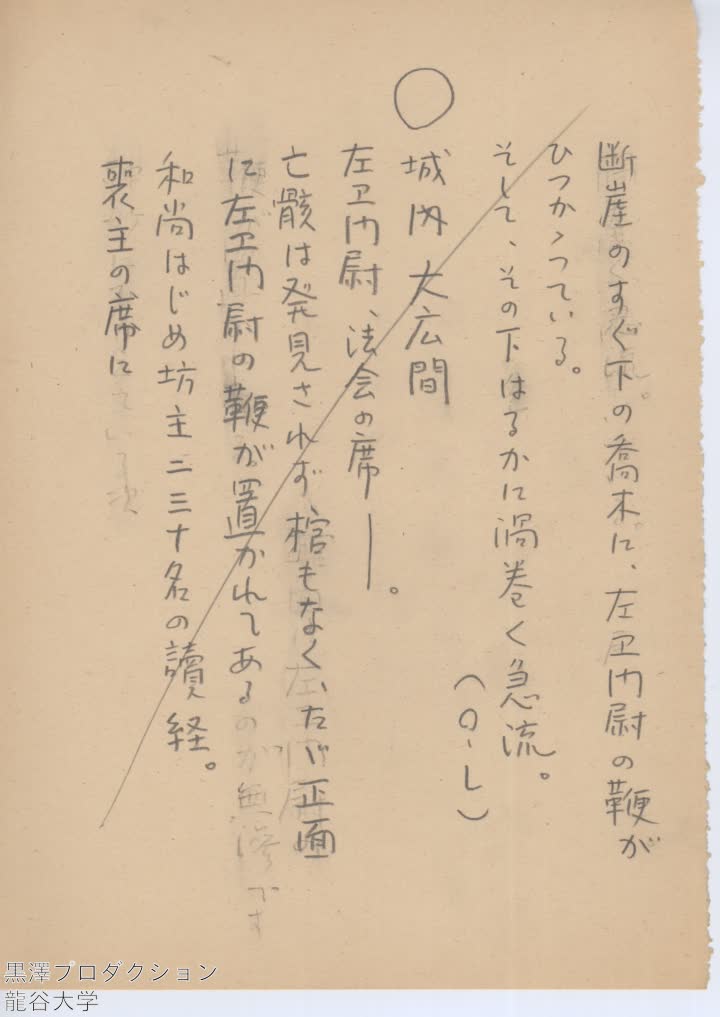 断崖のすぐ下の喬木に、左ヱ门尉の鞭が
ひつかゝつている。
そして、その下はるかに渦巻く急流。
(O・L)
○
城内 大広間
左ヱ门尉、法会の席——。
亡骸は発見されず棺もなく、たゞ正面
に左ヱ门尉の鞭が置かれてあるのが無惨です
和尚はじめ坊主二三十名の讀経。
喪主の席に
黒澤プロダクション
龍谷大学